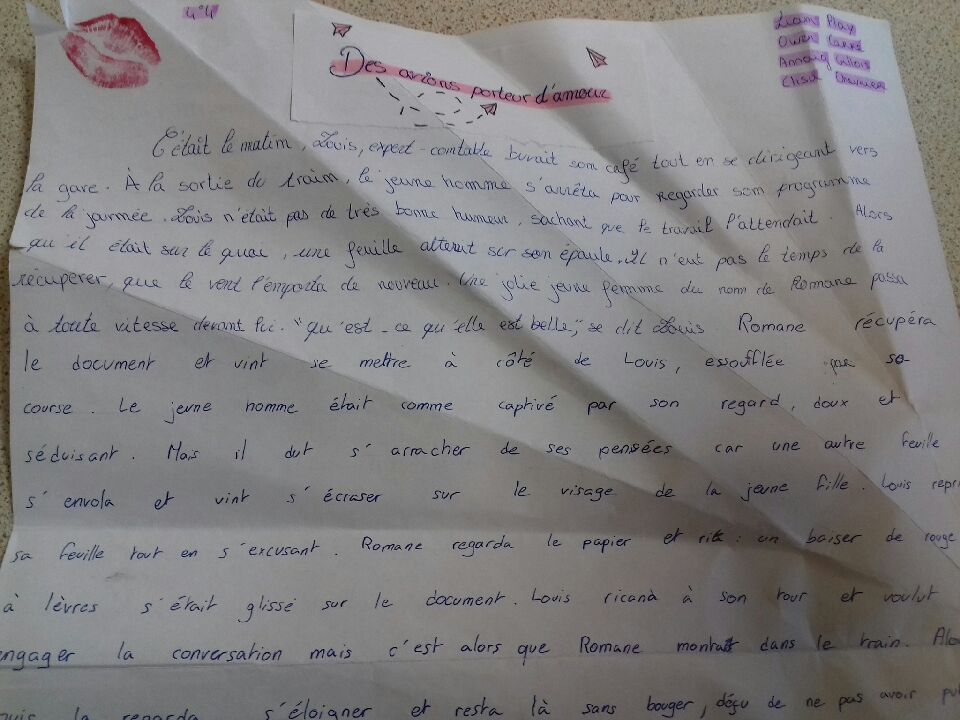 4°4
Liam Plax
Owen Carré
Annaïg Gillois
Elisa Chevalier
Des avions porteur d'amour
C'était le matin, Louis, expert-comtable buvait son café tout en se dirigeant vers
la gare. À la sortie du train, le jeune homme s'arrêta pour regarder son programme
de la journée. Louis n'était pas de très bonne humeur, sachant que le travail l'attendait. Alors
qu'il était sur le quai, une feuille atterit sur son épaule. Il n'eut pas le temps de la
récupérer, que le vent l'emporta de nouveau. Une jolie jeune femme du nom de Romane passa
à toute vitesse devant lui. "qu'est-ce qu'elle est belle," se dit Louis. Romane récupéra
le document et vint se mettre à côté de Louis, essoufflée par sa
course. Le jeune homme était comme captivé par son regard, doux et
séduisant. Mais il dut s'arracher de ses pensées car une autre feuille
s'envola et vint s'écraser sur le visage de la jeune fille. Louis repri
sa feuille tout en s'excusant. Romane regarda le papier et rit: un baiser de rouge
à lèvres s'était glissé sur le document. Louis ricanà à son tour et voulut
engager la conversation mais c'est alors que Romane montait dans le train. Alo
la regarda s'éloigner et resta là sans bouger, déçu de ne pas avoir pu